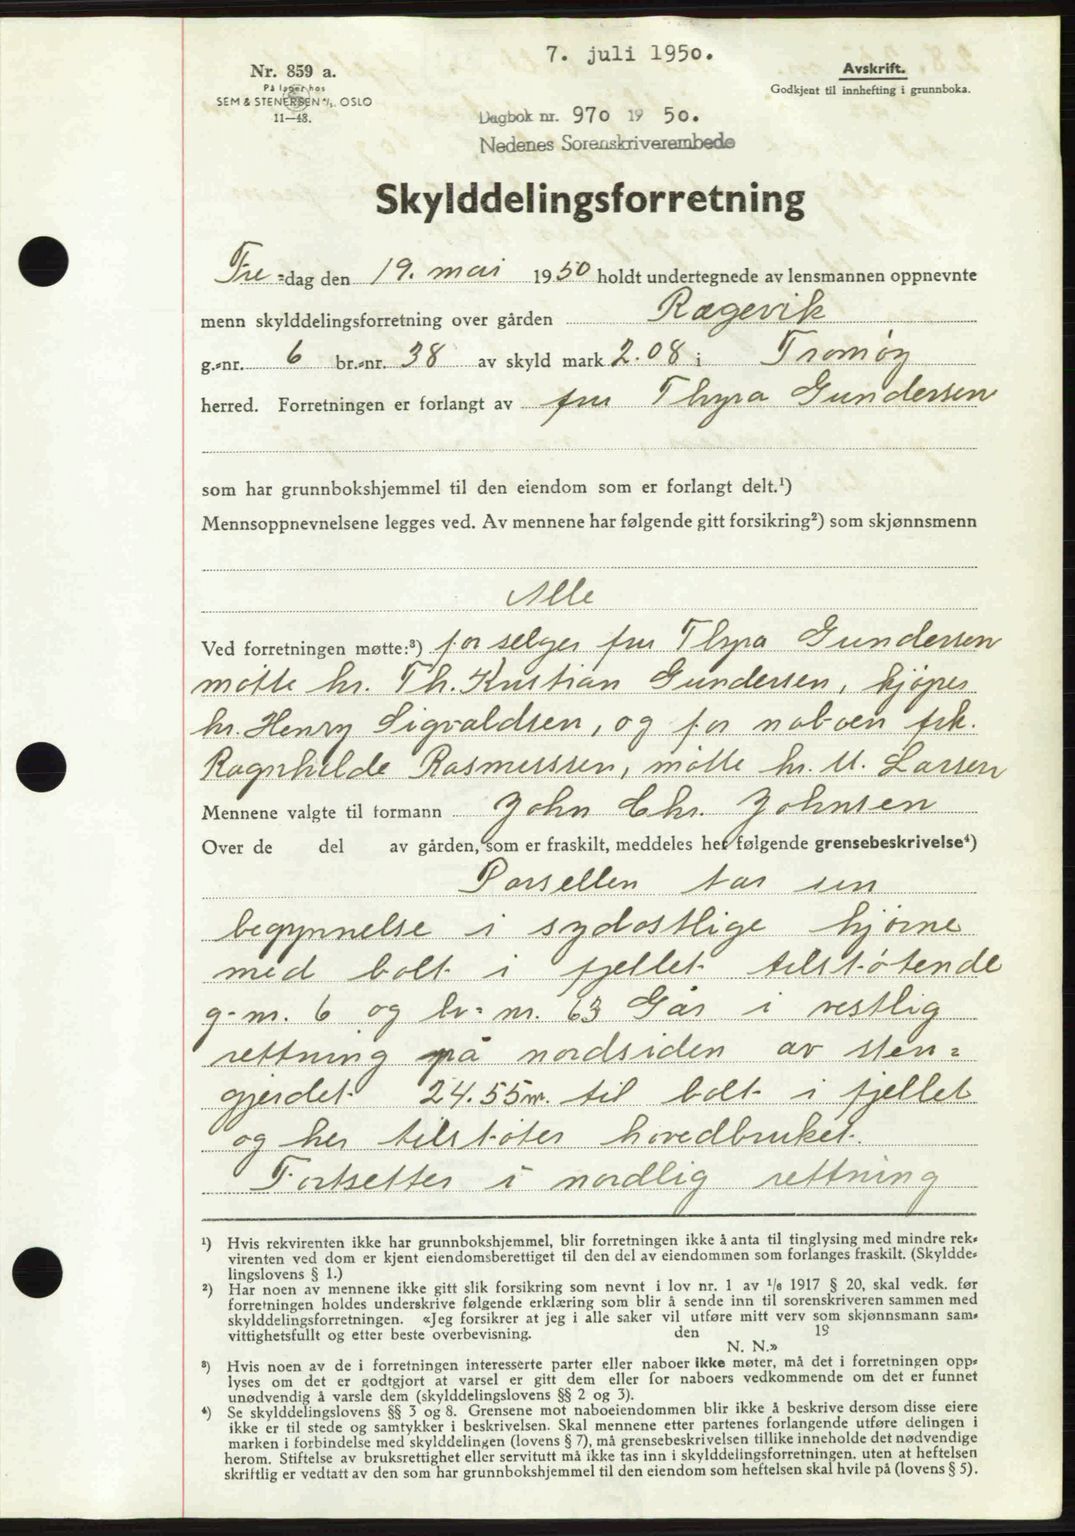 7. juli 1950.
Nr. 859 a.
På lager hos
SEM & STENERSEN A/S. OSLO
11—48.
Avskrift.
Godkjent til innhefting i grunnboka.
Dagbok nr. 970 19 50.
Nedenes Sorenskriverembede
Skylddelingsforretning
Fre-dag den 19. mai 1950 holdt undertegnede av lensmannen oppnevnte
menn skylddelingsforretning over gården Rægevik
g.-nr. 6 br.-nr. 38 av skyld mark 2.08 i Tromøy
herred. Forretningen er forlangt av fru Thyra Gundersen
som har grunnbokshjemmel til den eiendom som er forlangt delt.¹)
Mennsoppnevnelsene legges ved. Av mennene har følgende gitt forsikring²) som skjønnsmenn
Alle
Ved forretningen møtte:³) for selger fru Thyra Gundersen
møtte hr. Th. Kristian Gundersen, kjöper
hr. Henry Sigvaldsen, og for naboen frk.
Ragnhilde Rasmussen, møtte hr. M. Larsen
Mennene valgte til formann John Chr. Johnsen
Over de del av gården, som er fraskilt, meddeles her følgende grensebeskrivelse⁴)
Parsellen tar sin
begynnelse i sydostlige hjörne
med bolt i fjellet tilstøtende
g-nr. 6 og br-nr. 63 Går i vestlig
rettning på nordsiden av sten-
gjerdet 24.55m. til bolt i fjellet
og her tilstøter hovedbruket.
Fortsetter i nordlig rettning
¹) Hvis rekvirenten ikke har grunnbokshjemmel, blir forretningen ikke å anta til tinglysing med mindre rek-
virenten ved dom er kjent eiendomsberettiget til den del av eiendommen som forlanges fraskilt. (Skyldde-
lingslovens § 1.)
²) Har noen av mennene ikke gitt slik forsikring som nevnt i lov nr. 1 av 1/6 1917 § 20, skal vedk. før
forretningen holdes underskrive følgende erklæring som blir å sende inn til sorenskriveren sammen med
skylddelingsforretningen. «Jeg forsikrer at jeg i alle saker vil utføre mitt verv som skjønnsmann sam-
vittighetsfullt og etter beste overbevisning. den 19
N. N.»
³) Hvis noen av de i forretningen interesserte parter eller naboer ikke møter, må det i forretningen opp-
lyses om det er godtgjort at varsel er gitt dem eller for naboers vedkommende om det er funnet
unødvendig å varsle dem (skylddelingslovens §§ 2 og 3).
⁴) Se skylddelingslovens §§ 3 og 8. Grensene mot naboeiendommen blir ikke å beskrive dersom disse eiere
ikke er til stede og samtykker i beskrivelsen. Skal mennene etter partenes forlangende utføre delingen i
marken i forbindelse med skylddelingen (lovens § 7), må grensebeskrivelsen tillike inneholde det nødvendige
herom. Stiftelse av bruksrettighet eller servitutt må ikke tas inn i skylddelingsforretningen, uten at heftelsen
skriftlig er vedtatt av den som har grunnbokshjemmel til den eiendom som heftelsen skal hvile på (lovens § 5).